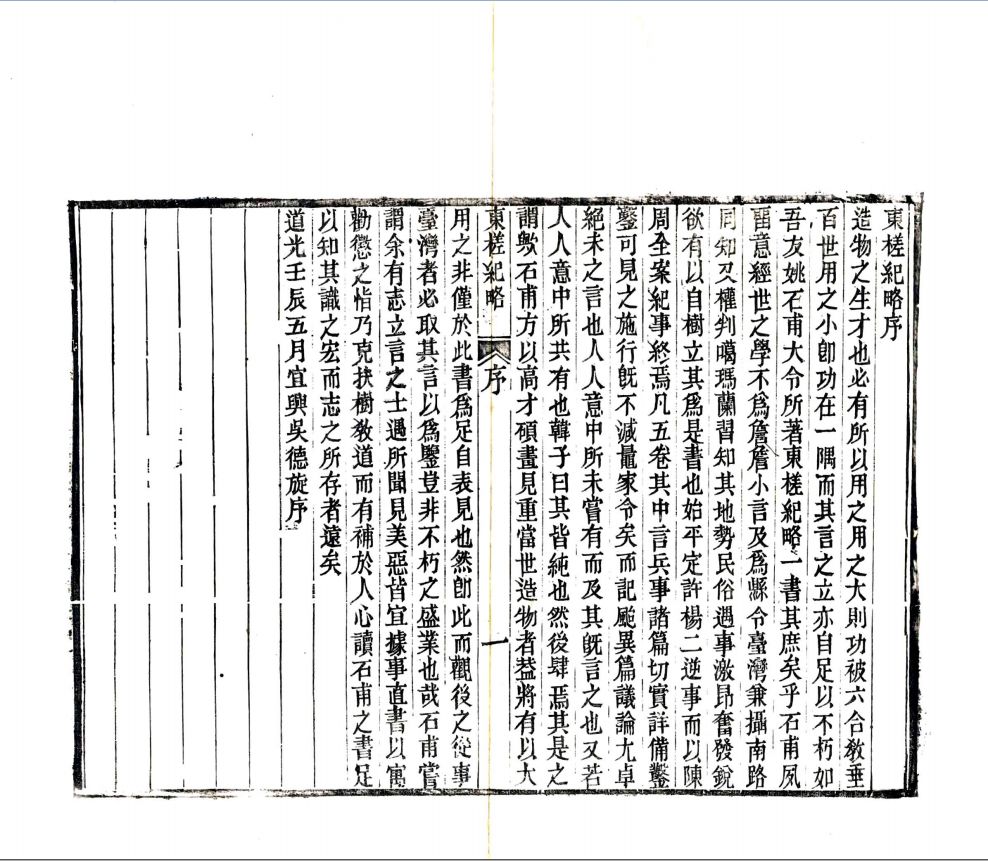 東槎紀略序
造物之生才也必有所以用之用之大則功被六合教垂
百世用之小卽功在一隅而其言之立亦自足以不朽如
吾友姚石甫大令所著東槎紀略一書其庶矣乎石甫夙
留意經世之學不爲詹詹小言及爲縣令臺灣兼攝南路
同知又權判噶瑪蘭習知其地勢民俗遇事激昂奮發銳
欲有以自樹立其爲是書也始平定許楊二逆事而以陳
周全案紀事終焉凡五卷其中言兵事諸篇切實詳備鑿
鑿可見之施行旣不減量家令矣而記颱異篇議論尤卓
絕未之言也人人意中所未嘗有而及其旣言之也又若
人人意中所共有也韓子曰其皆純也然後肆焉其是之
謂歟石甫方以高才碩畫見重當世造物者葢將有以大
東槎紀略 序 一
用之非僅於此書爲足自表見也然卽此而觀後之從事
臺灣者必取其言以爲鑒豈非不朽之盛業也哉石甫嘗
謂余有志立言之士遇所聞見美惡皆宜據事直書以寓
勸懲之恉乃克扶樹敎道而有補於人心讀石甫之書足
以知其識之宏而志之所存者遠矣
道光壬辰五月宜興吳德旋序